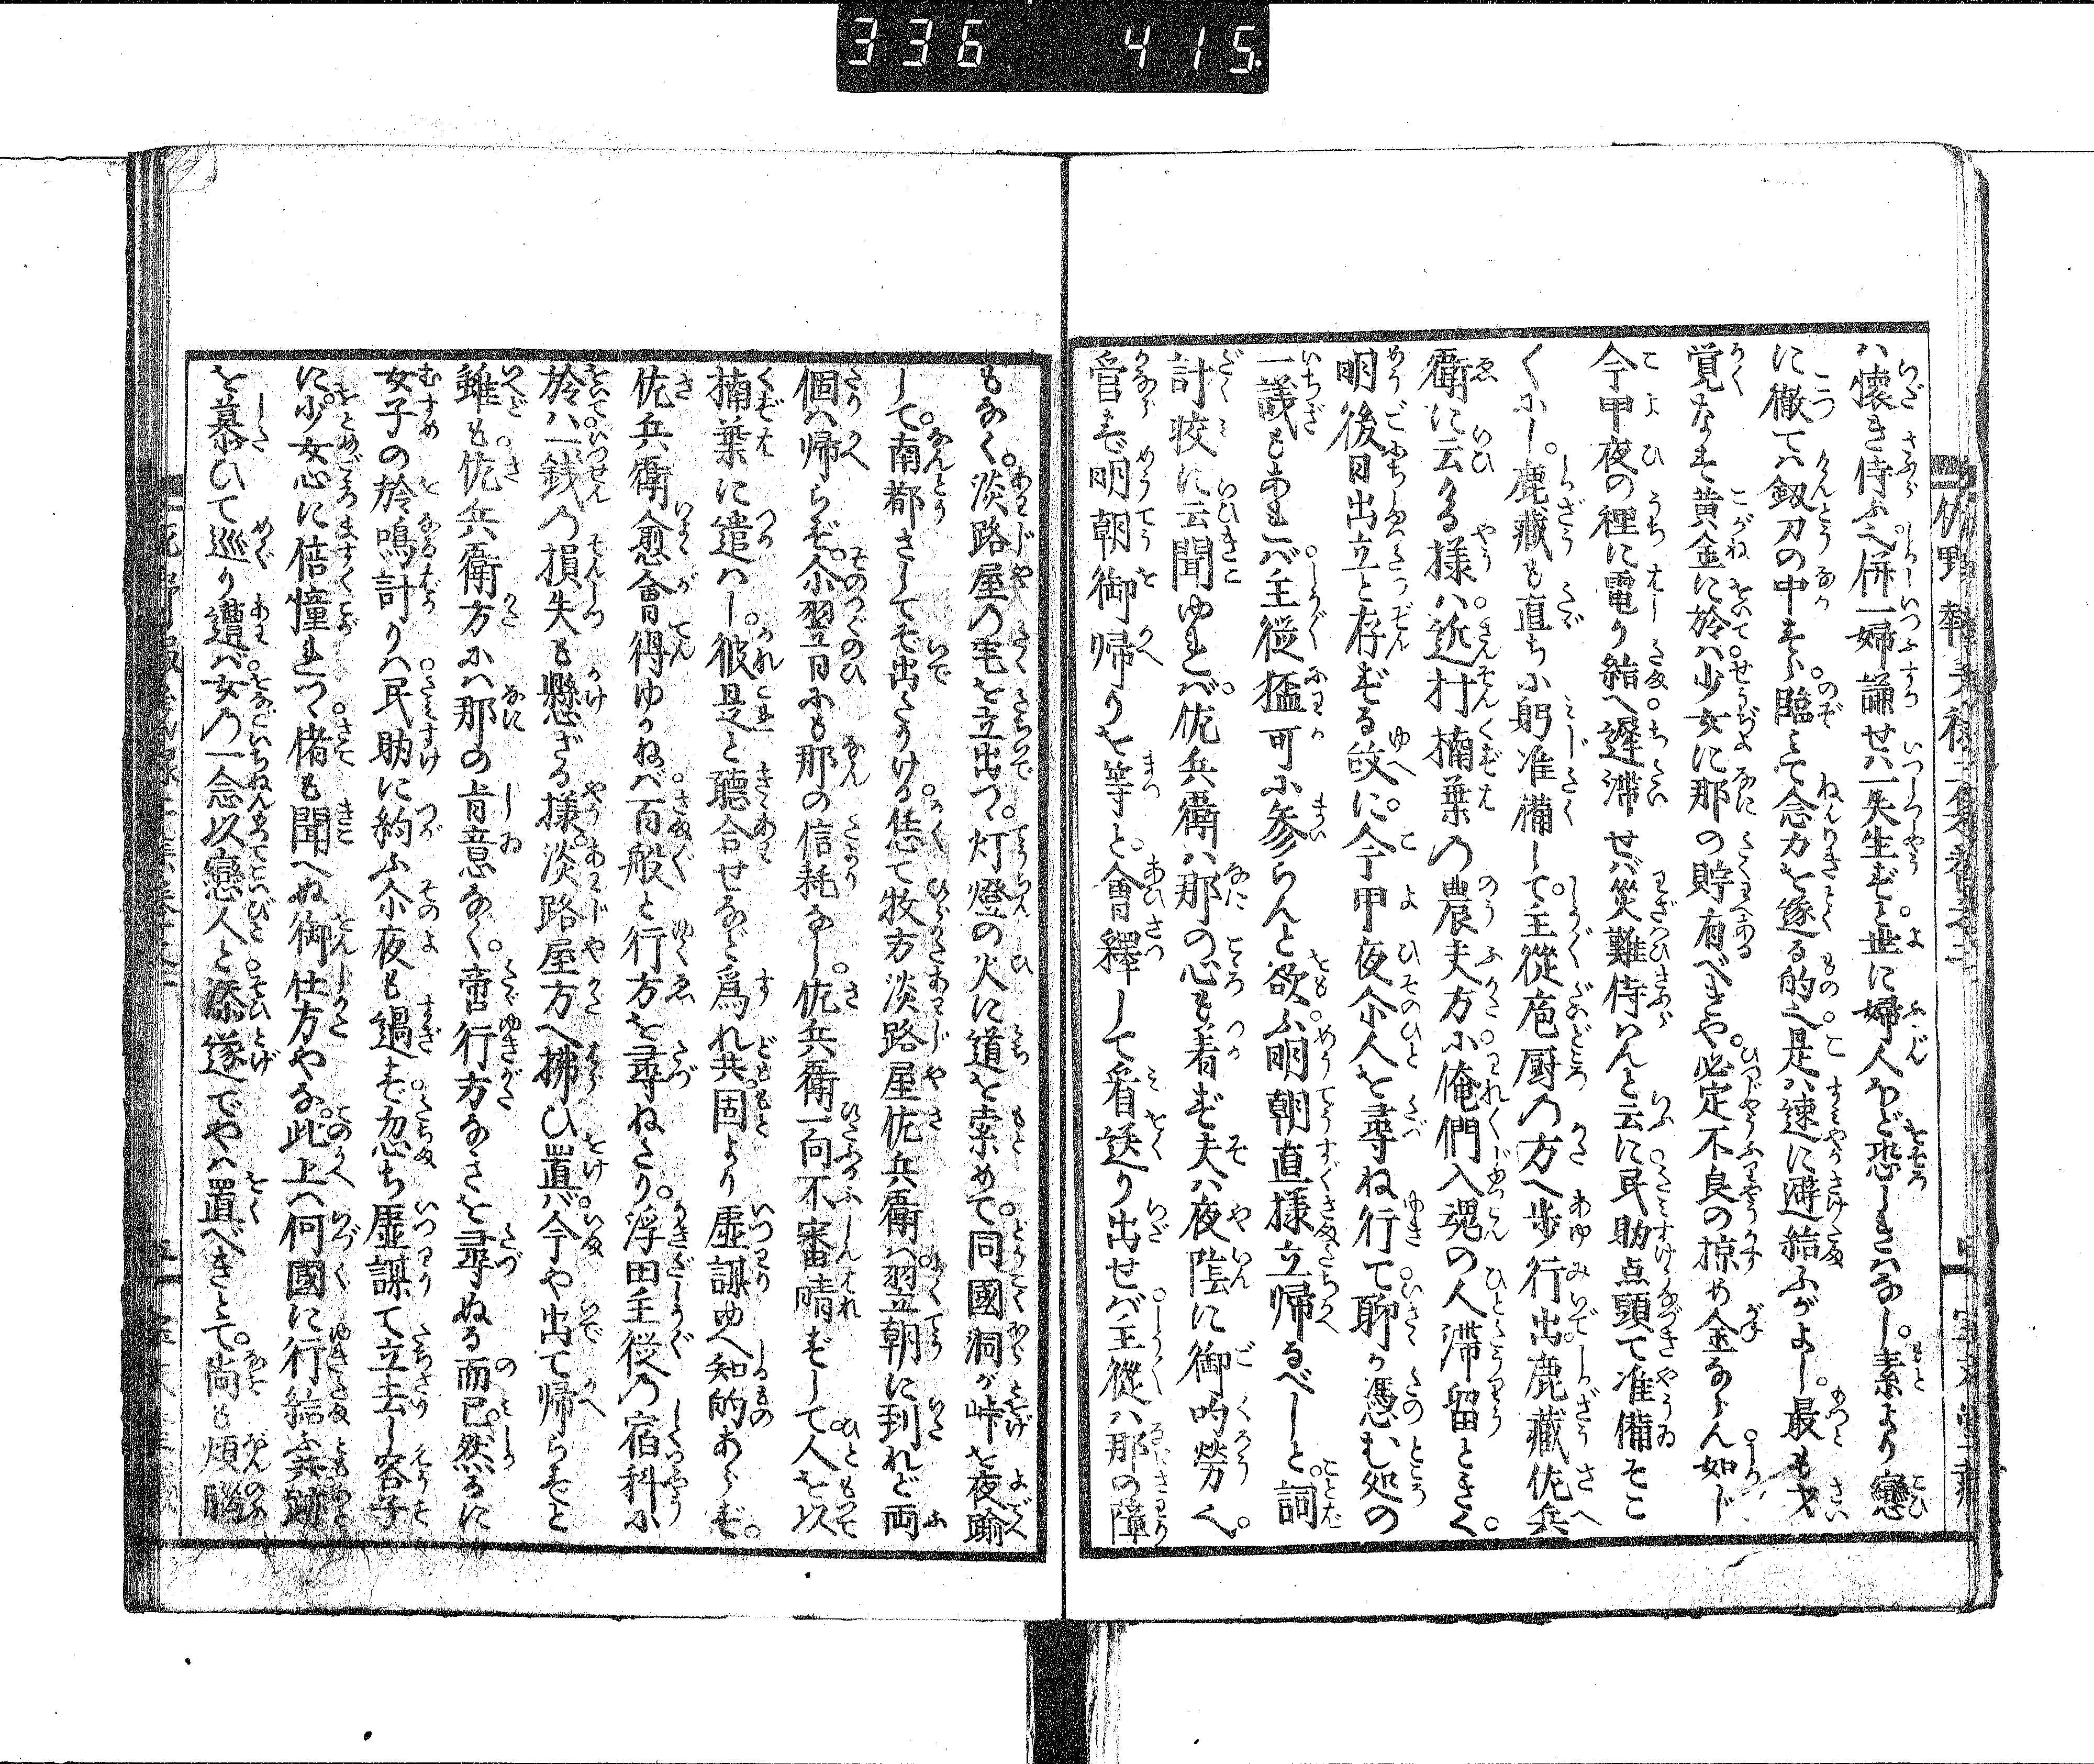 336 415
ハ懐き侍ふ也併一婦謙せバ一失生ぜと世に婦人ほど恐しきハなし。素より戀
に徹てハ釼刀の中すら臨とて念力を遂る的也是ハ速に避給ふがよし。最も才
覚なき黄金に於ハ少女に那の貯有べきや。必定不良の掠め金ならん如じ
今甲夜の裡に電り給へ遅滞せバ災難侍ハんと云に民助点頭て准備そこ
くにし。鹿藏も直ちに躬准備して主從庖厨の方へ歩行出鹿藏佐兵
衛に云ける様ハ近村楠葉の農夫方に俺們入魂の人滞留ときく。
明後日出立と存ずる故に。今甲夜尓人を尋ね行て聊か憑む処の
一議もあれバ主從猛可に參らんと欲ふ明朝直樣立帰るべしと詞
計狡に云聞ゆれバ。佐兵衛ハ那の心も着ず夫ハ夜陰に御吟勞く。
管ず明朝御帰りを等と會釋して看送り出せバ主從ハ那の障
もなく。淡路屋の宅を立出つ。灯燈の火に道を索めて同國洞が峠を夜踰
して。南都さしてぞ出さりける恁て牧方淡路屋佐兵衛ハ翌朝に到れど両
個ハ帰らず。尓翌日にも那の信耗なし。佐兵衛一向不審晴ずして人を以
楠葉に遣ハし。彼是と聽合せなど爲れ共固より虚謀ゆへ知的あらず。
佐兵衛愈會得ゆかねバ百般と行方を尋ねたり。浮田主從の宿科に
於ハ一銭の損失も懸ざる様淡路屋方へ拂ひ置バ今や出て帰らずと
雖も佐兵衛方にハ那の肯意なく。啻行方なきを尋ぬる而已。然るに
女子の於鳴計りハ民助に約ふ尓夜も過ず忽ち虚謀て立去し容子
に。少女心に倍憧れつゝ偖も聞へぬ御仕方やな。此上ハ何國に行給ふ共跡
を慕ひて巡り遭バ女の一念以戀人と添遂でやハ置べきとて。尚も煩腦